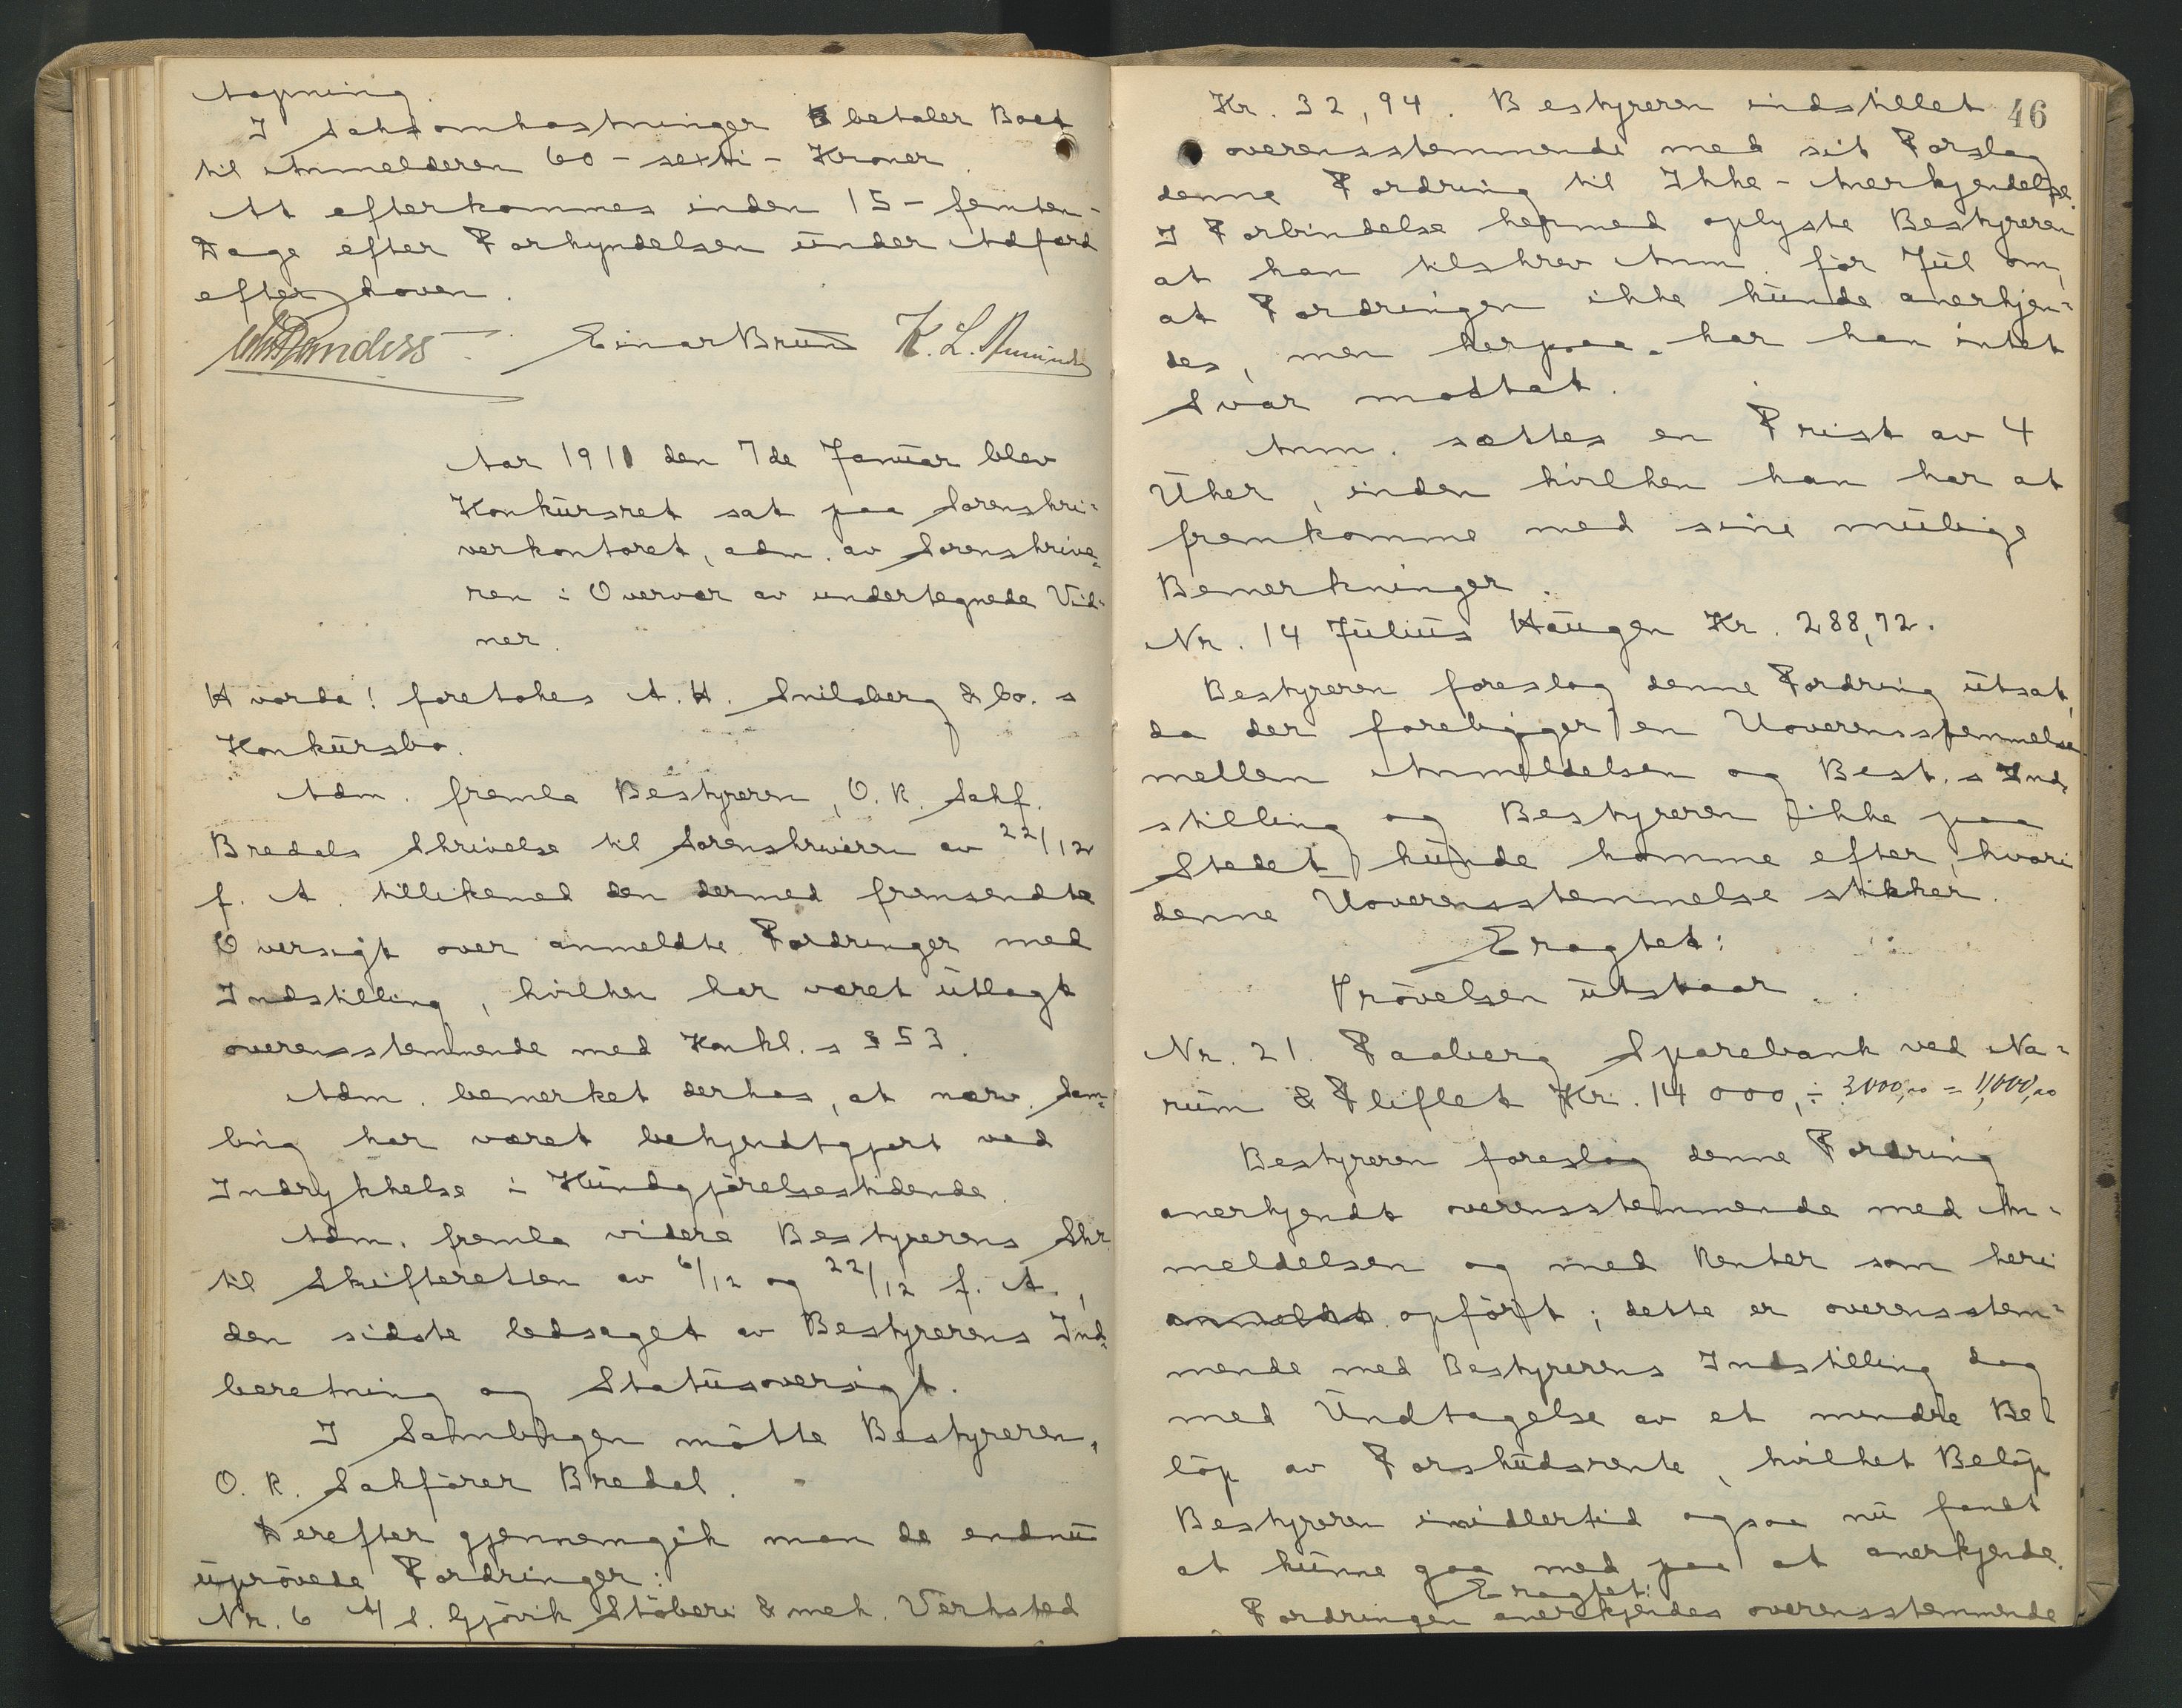 tapning.
I Saksomkostninger betaler Boet
til Anmelderen 60 - sexti - Kroner.
At efterkommes inden 15 - femten -
Dage efter Forkyndelsen under Adfærd
efter Loven.
Einar Bruun K. L.
Aar 1911 den 7de Januar blev
Konkursret sat paa Sorenskri-
verkontoret, adm. av Sorenskrive-
ren i Overvær av undertegnede Vid-
ner.
Hvorda! foretokes A. H. Snilsberg & Co. s
Konkursbo.
Adm. fremla Bestyreren, O. R. Sakf.
Bredals Skrivelse til Sorenskriveren av 22/12
f. A. tillikemed den dermed fremsendte
Oversigt over anmeldte Fordringer med
Indstilling, hvilken har været utlagt
overensstemmende med Konkl. s § 53.
Adm. bemerket derhos, at nærv. Sam-
ling har været bekjendtgjort ved
Indrykkelse i Kundgjørelsestidende.
Adm. fremla videre Bestyrerens Skr.
til Skifteretten av 6/12 og 22/12 f. A.,
den sidste ledsaget av Bestyrerens Ind-
beretning og Statusoversigt.
I Samlingen møtte Bestyreren,
O. R. Sakfører Bredal.
Derefter gjennemgik man de endnu
uprøvede Fordringer:
Nr. 6 A/S. Gjøvik Støberi & mek. Verksted
46
Kr. 32,94. Bestyreren indstillet
overensstemmende med sit Forslag
denne Fordring til Ikke-Anerkjendelse.
I Forbindelse hermed oplyste Bestyreren
at han tilskrev Anm. før Jul om,
at Fordringen ikke kunde anerkjen-
des, men herpaa har han intet
Svar modtat.
Anm. sættes en Frist av 4
Uker, inden hvilken han har at
fremkomme med sine mulige
Bemerkninger.
Nr. 14 Julius Haugen Kr. 288,72.
Bestyreren foreslog denne Fordring utsat,
da der foreligger en Uoverensstemmelse
mellem Anmeldelsen og Best. s Ind-
stilling og Bestyreren ikke paa
Stedet kunde komme efter, hvori
denne Uoverensstemmelse stikker.
Eragtet:
Prøvelsen utstaar.
Nr. 21. Faaberg Sparebank ved Na-
rum & Fliflet Kr. 14 000, ÷ 3000,00 = 11,000,00
Bestyreren foreslog denne Fordring
anerkjendt overensstemmende med An-
meldelsen og med Renter som heri
anmeldt opført; dette er overensstem-
mende med Bestyrerens Indstilling dog
med Undtagelse av et mindre Be-
løp av Forskudsrente, hvilket Beløp
Bestyreren imidlertid ogsaa nu fandt
at kunne gaa med paa at anerkjende.
Eragtet:
Fordringen anerkjendes overensstemmende